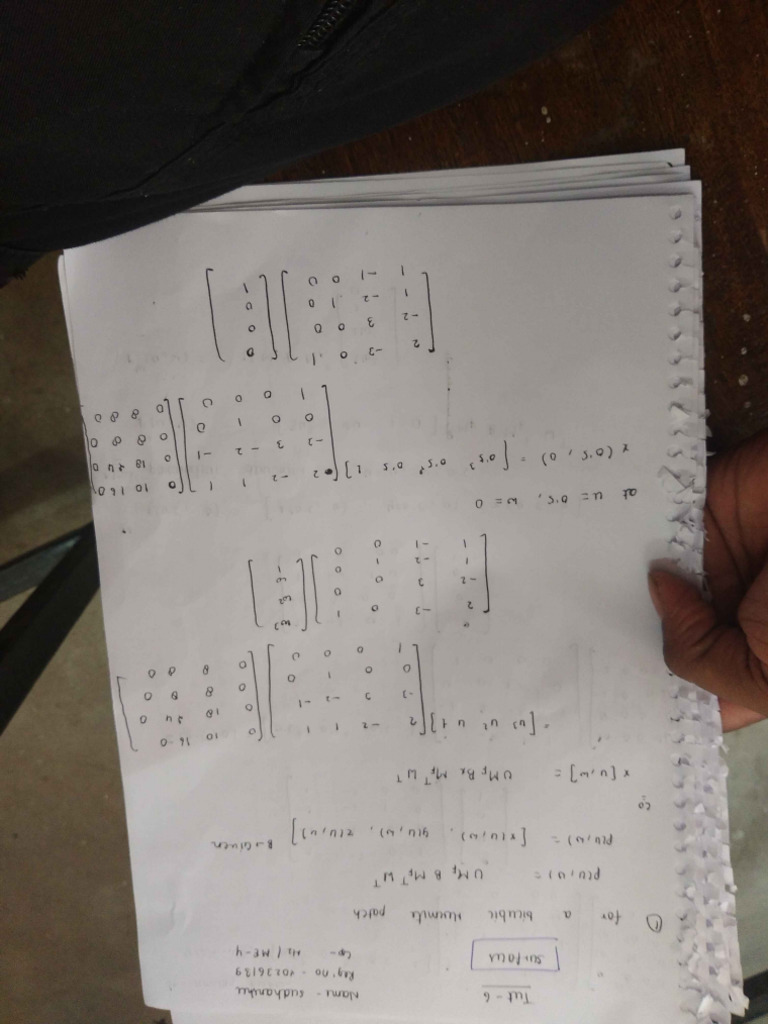 Tut-6
Name - Sudhanshu
Reg. no - 10236139
Gp - H2 / ME-4
Surfaces
① for a bicubic Hermite patch
p(u,w) = U M_F B M_F^T W^T
p(u,w) = [x(u,w), y(u,w), z(u,w)] B→Given
So
x[u,w] = U M_F Bx M_F^T W^T
= [u³ u² u 1]
2 -2 1 1
-3 3 -2 -1
0 0 1 0
1 0 0 0
0 10 16 0
0 18 24 0
0 8 8 0
0 8 8 0
2 -3 0 1
-2 3 0 0
1 -2 1 0
1 -1 0 0
w³
w²
w
1
at u = 0.5, w = 0
x(0.5, 0) = [0.5³ 0.5² 0.5 1]
2 -2 1 1
-3 3 -2 -1
0 0 1 0
1 0 0 0
0 10 16 0
0 18 24 0
0 8 8 0
0 8 8 0
2 -3 0 1
-2 3 0 0
1 -2 1 0
1 -1 0 0
0
0
0
1